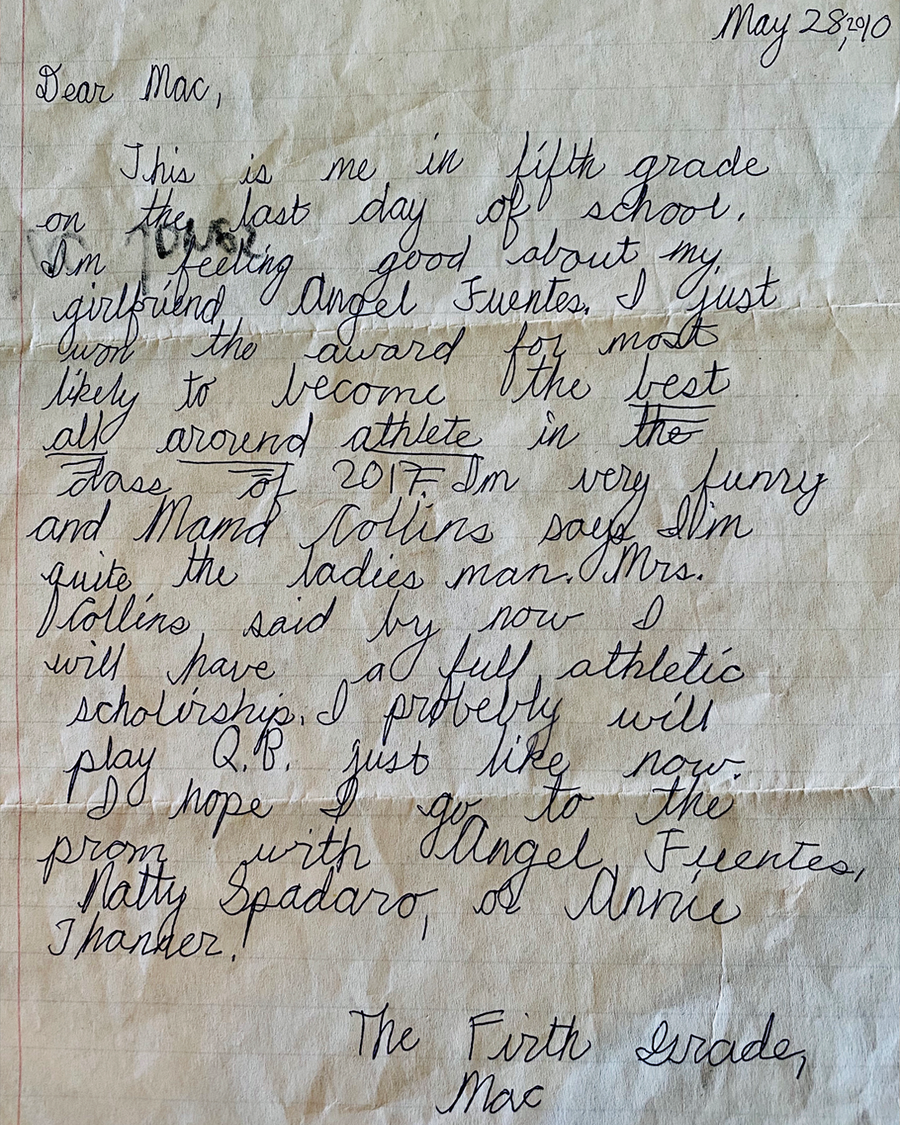 May 28, 2010
Dear Mac,
This is me in fifth grade
on the last day of school.
I'm feeling good about my
girlfriend Angel Fuentes. I just
won the award for most
likely to become the best
all around athlete in the
class of 2017. I'm very funny
and Mamd Collins says I'm
quite the ladies man. Mrs.
Collins said by now I
will have a full athletic
scholirship. I probebly will
play Q.B. just like now.
I hope I go to the
prom with Angel Fuentes,
Natty Spadaro, or Annie
Thanner!
The Firth Grade,
Mac